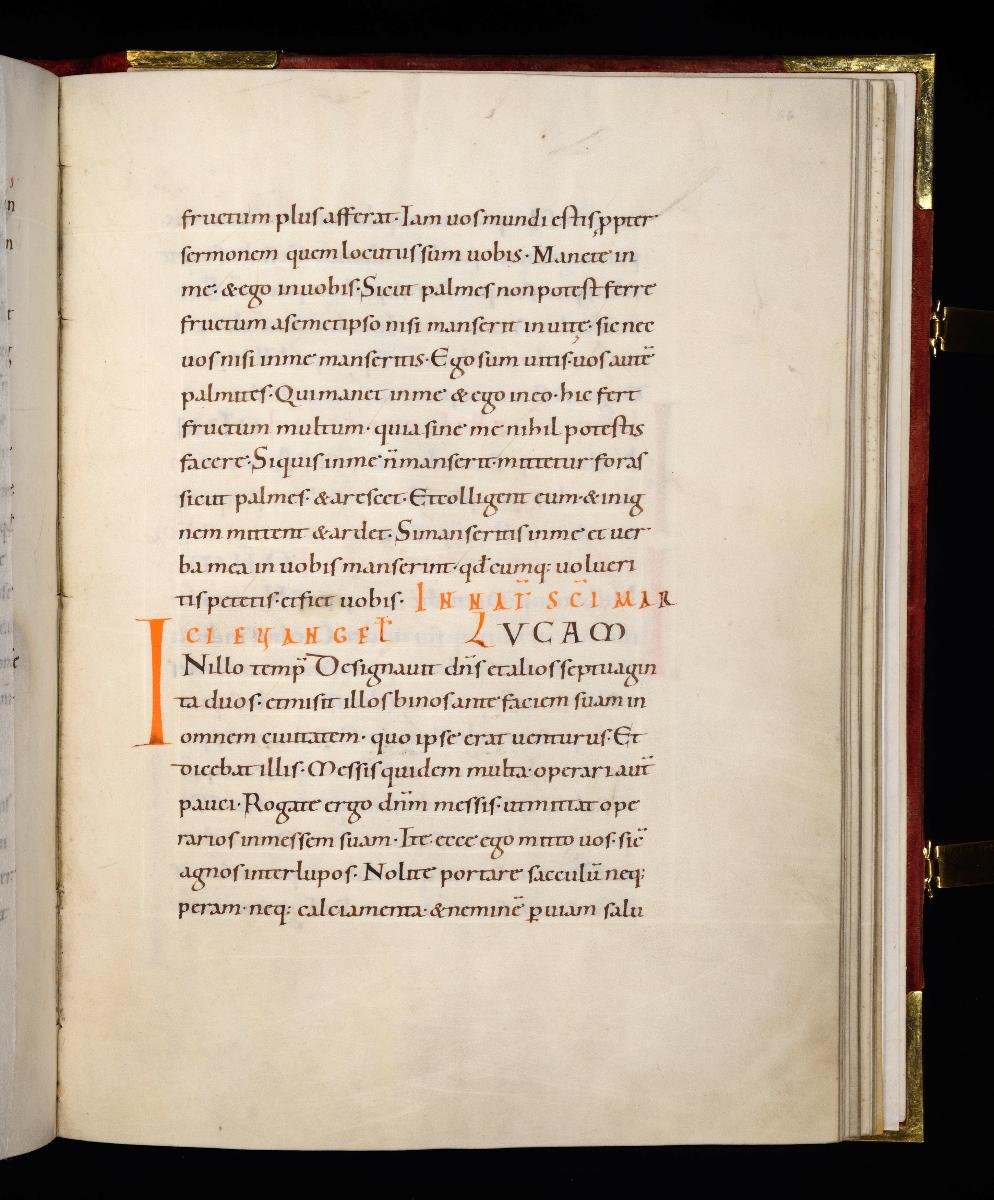 fructum plus afferat · Iam uos mundi estis ꝓpter
sermonem quem locutus sum uobis · Manete in
me · & ego in uobis · Sicut palmes non potest ferre
fructum asemetipso nisi manserit in uitę · sic nec
uos nisi in me manseritis · Ego sum uitis · uos autē
palmites · Qui manet in me & ego in eo · hic fert
fructum multum · quia sine me nihil potestis
facere · Si quis in me n̄ manserit · mittetur foras
sicut palmes · & arescet · Et colligent eum · & in ig
nem mittent & ardet · Si manseritis in me et uer
ba mea in uobis manserint · qđcumq: uolueri
tis petetis · et fiet uobis · IN NAT̄ SC̄I MAR
CI EUANGEL̄ LUCAM
INillo temp̄ Designauit dn̄s et alios septuagin
ta duos · et misit illos binos ante faciem suam in
omnem ciuitatem · quo ipse erat uenturus · Et
dicebat illis · Messis quidem multa · operarii aut̄
pauci · Rogate ergo dn̄m messis · ut mittat ope
rarios in messem suam · Ite · ecce ego mitto uos · sic̄
agnos inter lupos · Nolite portare sacculū neq;
peram · neq: calciamenta · & neminē ꝑ uiam salu